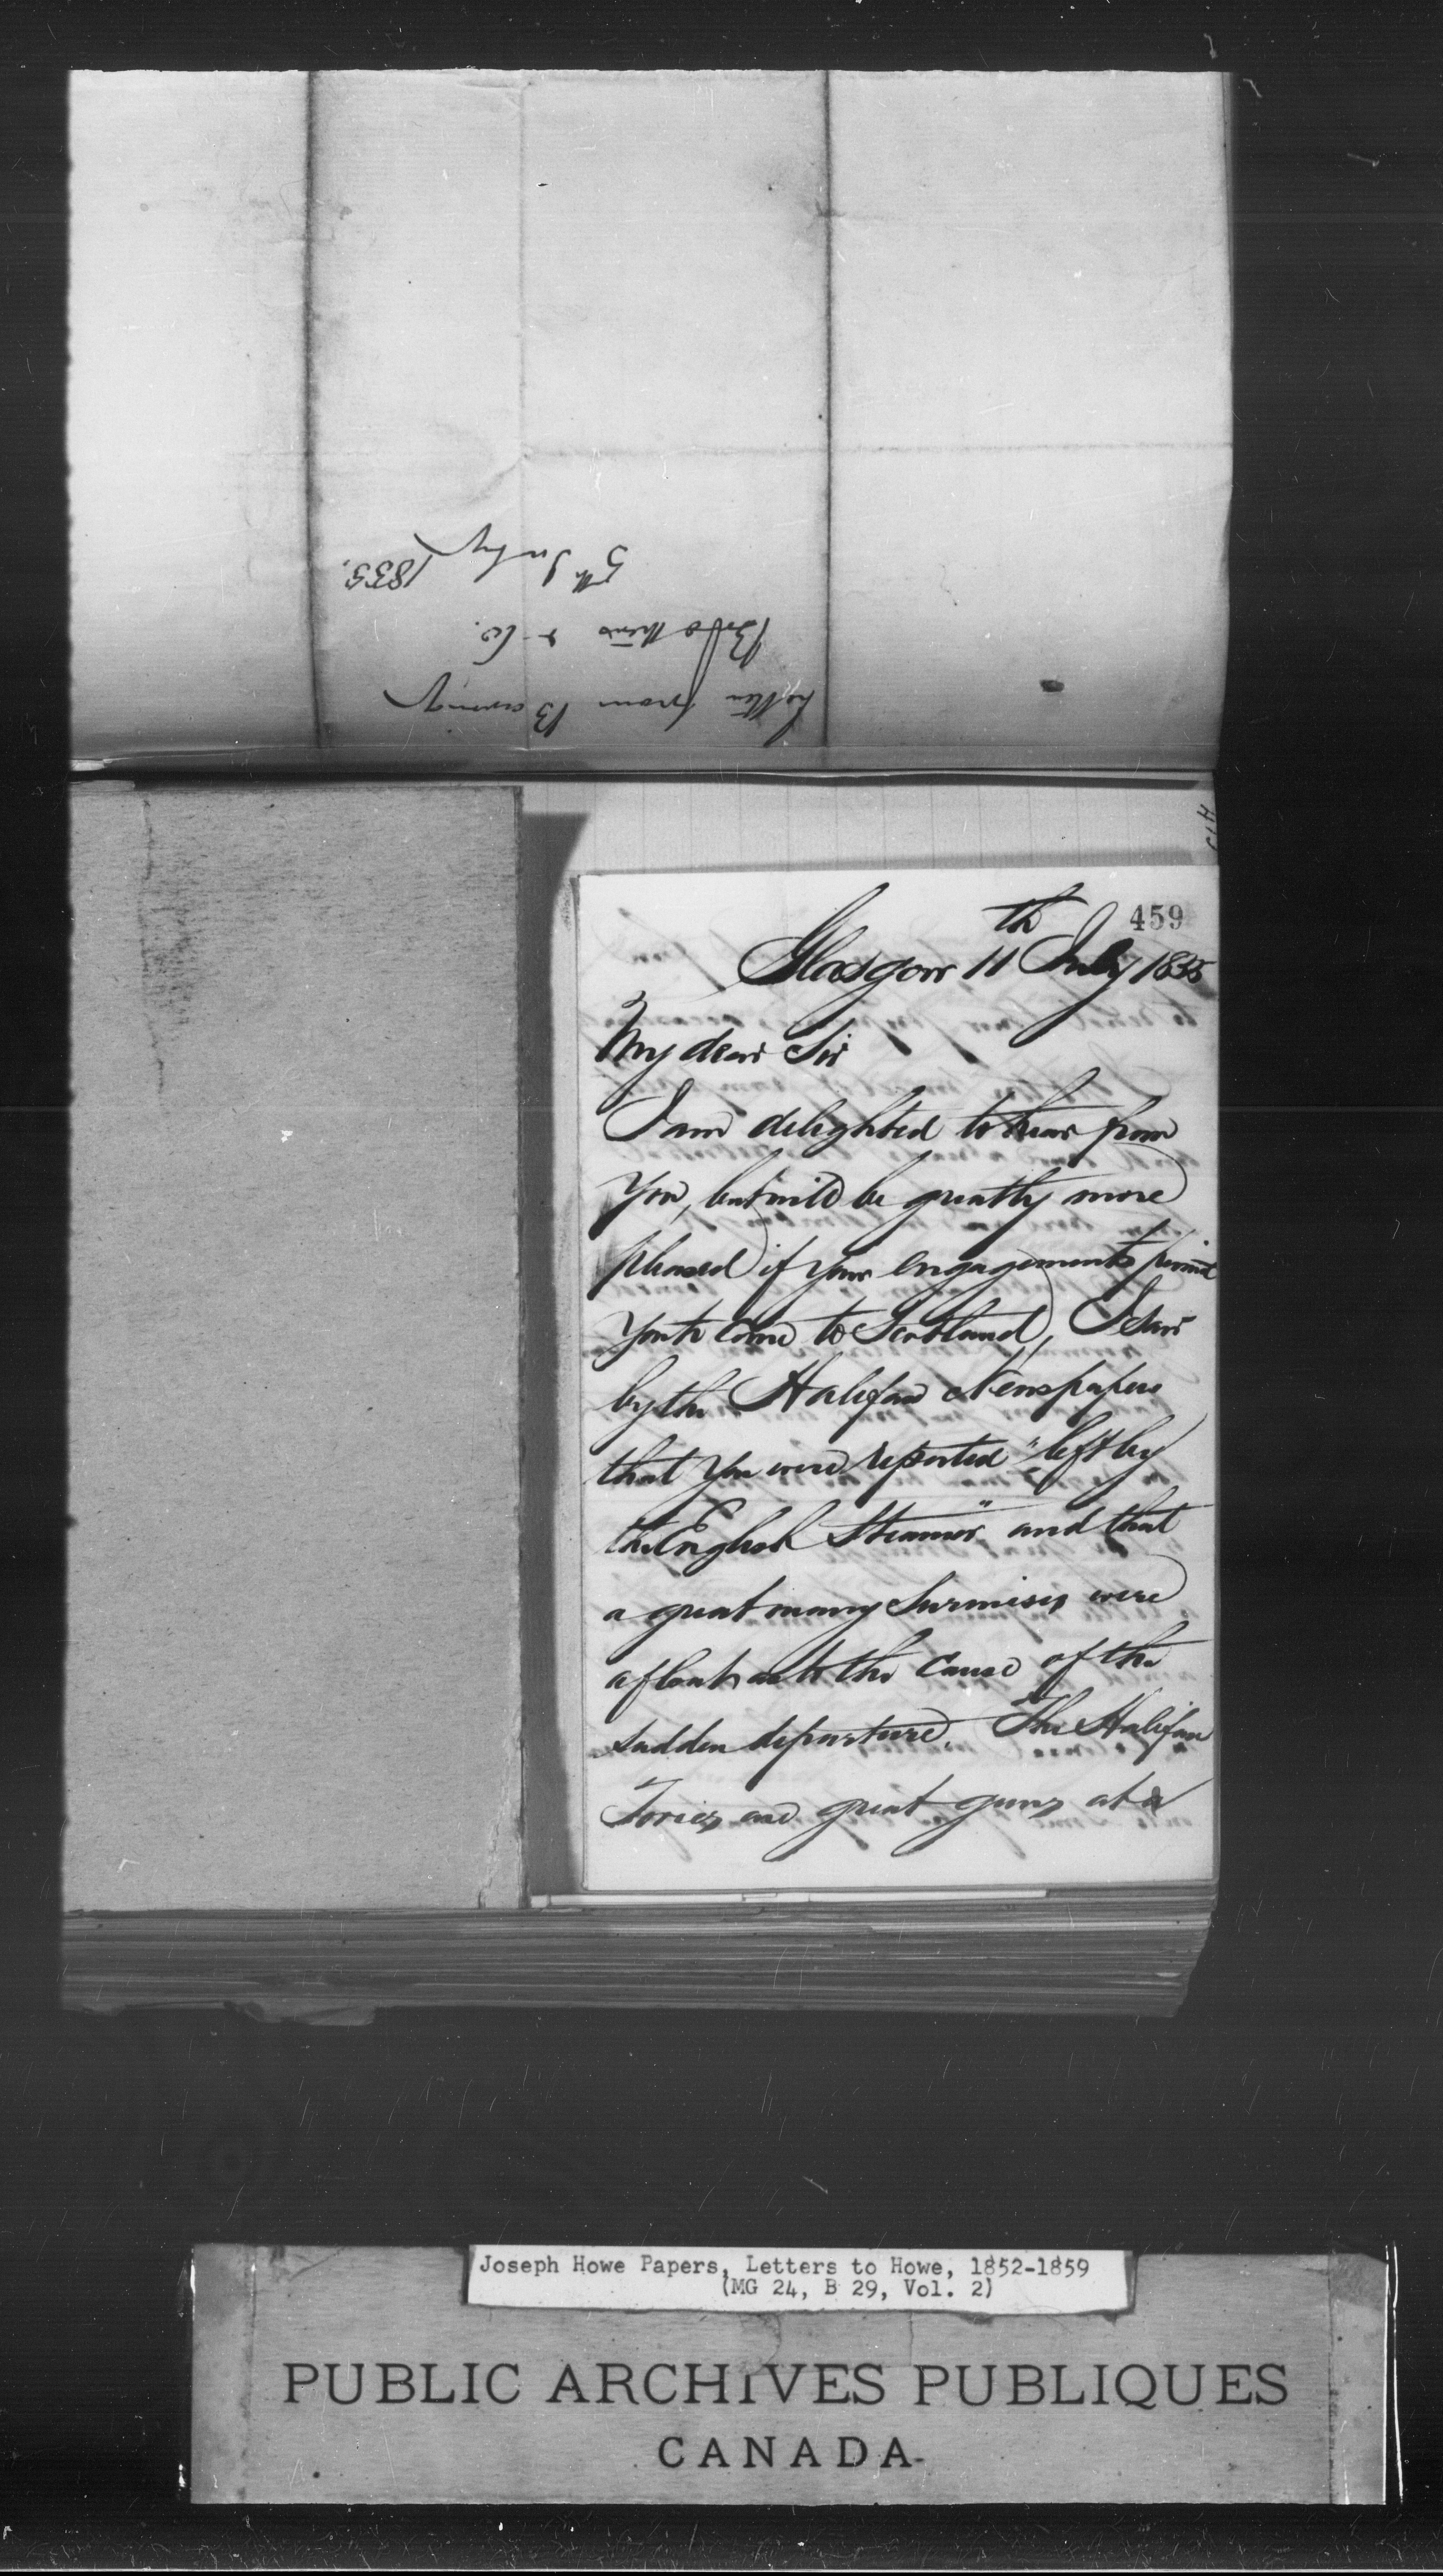 Letter from Baring
Brothers & Co.
5th July 1855.
459
Glasgow 11th July 1855
My dear Sir
I am delighted to hear from
you, but will be greatly more
pleased if your engagements permit
you to come to Scotland, I saw
by the Halifax Newspapers
that you were reported "left by
the English Steamer" and that
a great many surmises were
afloat as to the cause of the
sudden departure. The Halifax
Tories are great guns at a
Joseph Howe Papers, Letters to Howe, 1852-1859
(MG 24, B 29, Vol. 2)
PUBLIC ARCHIVES PUBLIQUES
CANADA